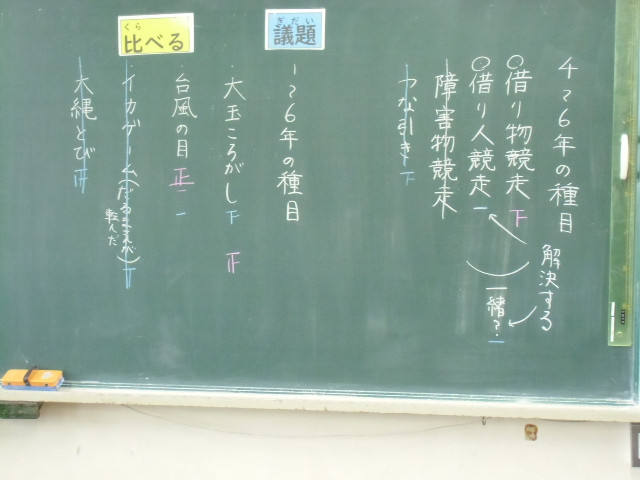 4～6年の種目
○借り物競走 下
○借り人競走 一
障害物競走
つな引き 下
解決する
一緒？ 一
議題
ぎだい
1～6年の種目
大玉ころがし 下 正
台風の目 正 一
比べる
くら
イカゲーム(だるまさんが転んだ)
大縄とび